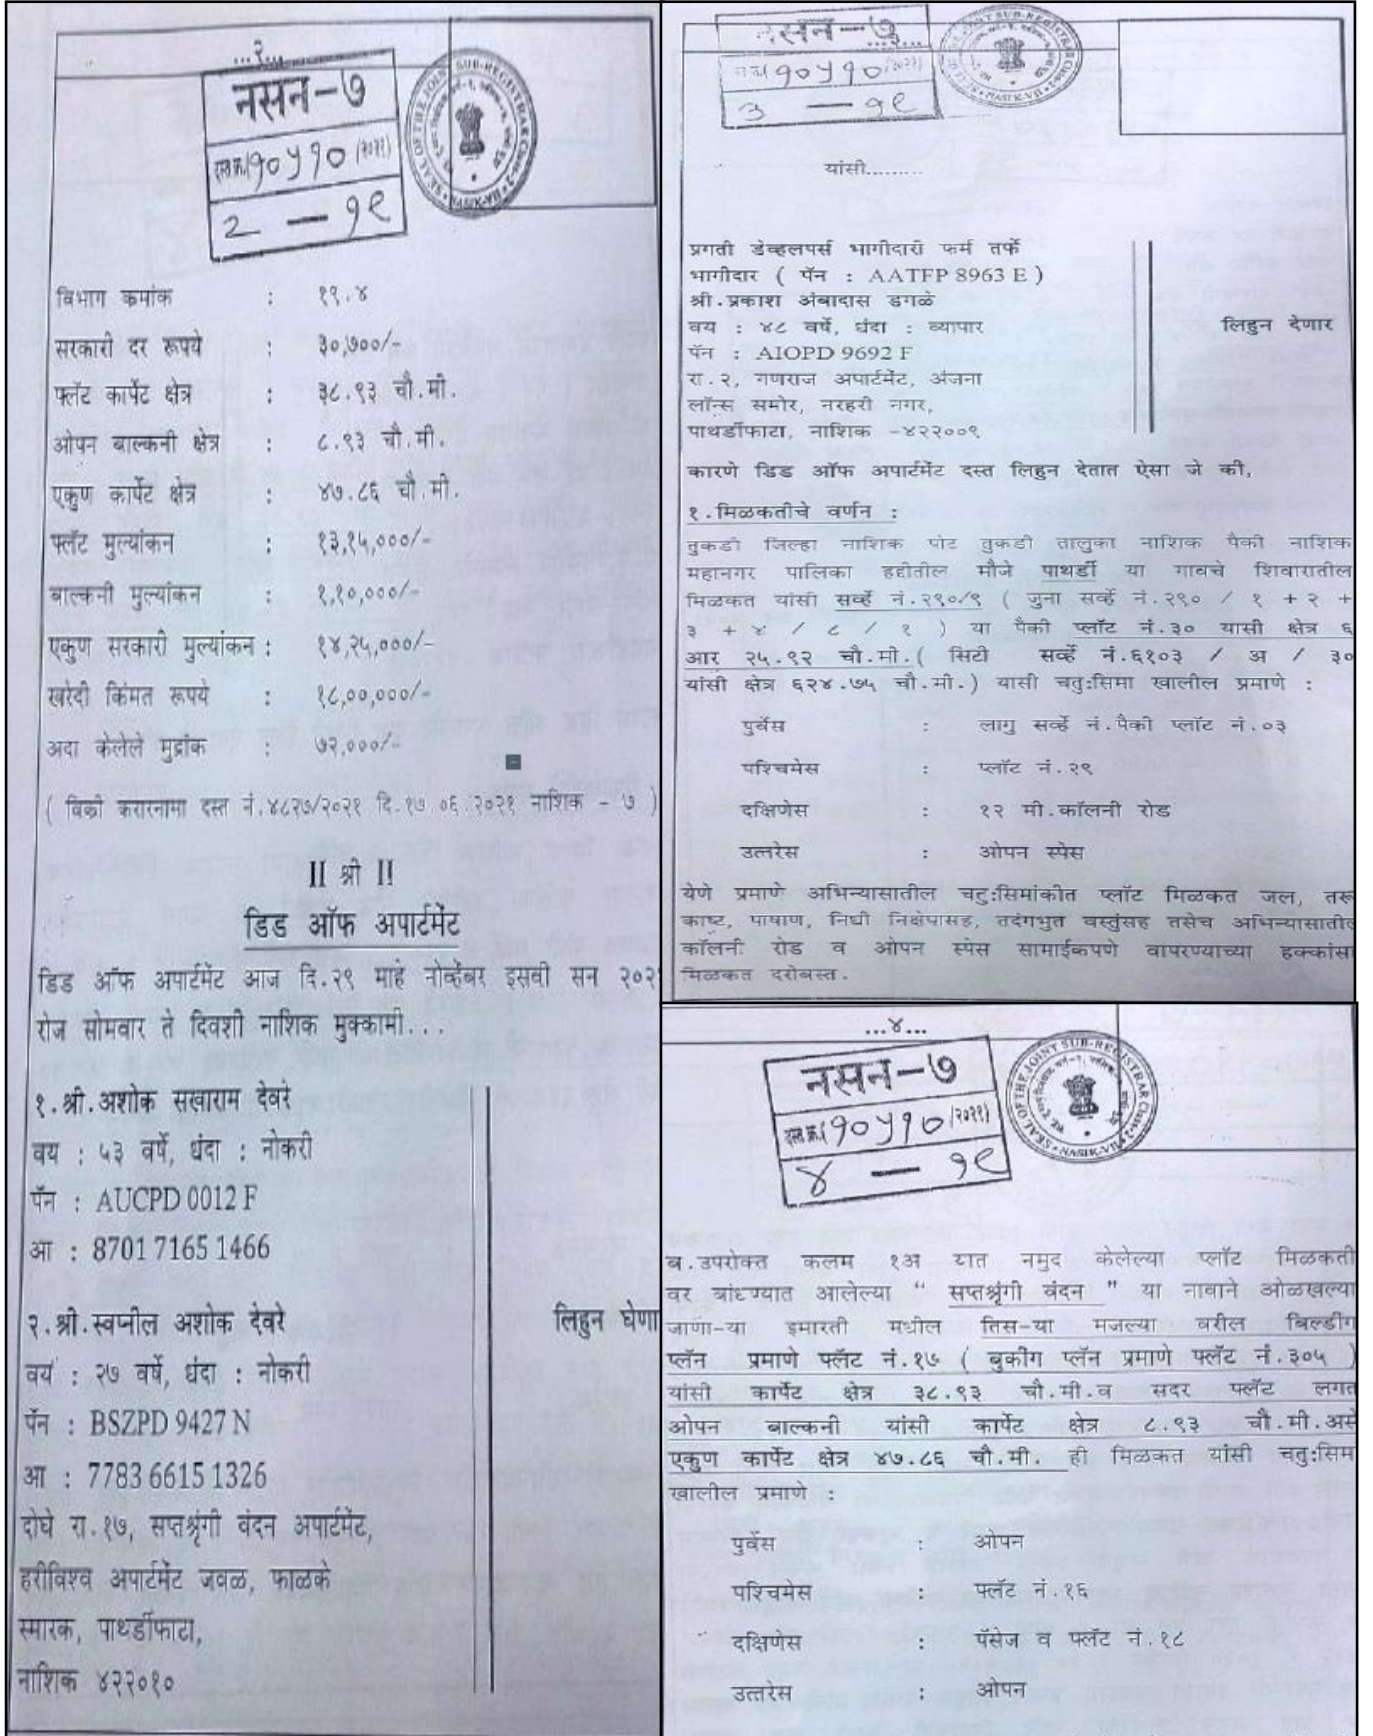 ...२...
नसन-७
दस्त क्र.(१०५१०/२०२१)
२ — १९
SEAL OF THE JOINT SUB-REGISTRAR Class-2
NASIK-VII
विभाग क्रमांक : १९.४
सरकारी दर रूपये : ३०,७००/-
फ्लॅट कार्पेट क्षेत्र : ३८.९३ चौ.मी.
ओपन बाल्कनी क्षेत्र : ८.९३ चौ.मी.
एकुण कार्पेट क्षेत्र : ४७.८६ चौ.मी.
फ्लॅट मुल्यांकन : १३,१५,०००/-
बाल्कनी मुल्यांकन : १,१०,०००/-
एकुण सरकारी मुल्यांकन : १४,२५,०००/-
खरेदी किंमत रूपये : १८,००,०००/-
अदा केलेले मुद्रांक : ७२,०००/-
( विक्री करारनामा दस्त नं.४८२७/२०२१ दि.१७.०६.२०२१ नाशिक - ७ )
II श्री II
डिड ऑफ अपार्टमेंट
डिड ऑफ अपार्टमेंट आज दि.२९ माहे नोव्हेंबर इसवी सन २०२१
रोज सोमवार ते दिवशी नाशिक मुक्कामी...
१.श्री.अशोक सखाराम देवरे
वय : ५३ वर्षे, धंदा : नोकरी
पॅन : AUCPD 0012 F
आ : 8701 7165 1466
२.श्री.स्वप्नील अशोक देवरे
लिहुन घेणा
वय : २७ वर्षे, धंदा : नोकरी
पॅन : BSZPD 9427 N
आ : 7783 6615 1326
दोघे रा.१७, सप्तश्रृंगी वंदन अपार्टमेंट,
हरीविश्व अपार्टमेंट जवळ, फाळके
स्मारक, पाथर्डीफाटा,
नाशिक ४२२०१०
नसन-७
...३...
१०५१०/२०२१
३ — १९
JOINT SUB-REGISTRAR
NASIK-VII
यांसी.........
प्रगती डेव्हलपर्स भागीदारी फर्म तर्फे
भागीदार ( पॅन : AATFP 8963 E )
श्री.प्रकाश अंबादास डगळे
वय : ४८ वर्षे, धंदा : व्यापार लिहुन देणार
पॅन : AIOPD 9692 F
रा.२, गणराज अपार्टमेंट, अंजना
लॉन्स समोर, नरहरी नगर,
पाथर्डीफाटा, नाशिक -४२२००९
कारणे डिड ऑफ अपार्टमेंट दस्त लिहुन देतात ऐसा जे की,
१.मिळकतीचे वर्णन :
तुकडी जिल्हा नाशिक पोट तुकडी तालुका नाशिक पैकी नाशिक
महानगर पालिका हद्दीतील मौजे पाथर्डी या गावचे शिवारातील
मिळकत यांसी सर्व्हे नं.२९०/९ ( जुना सर्व्हे नं.२९० / १ + २ +
३ + ४ / ८ / १ ) या पैकी प्लॉट नं.३० यासी क्षेत्र ६
आर २५.९२ चौ.मी.( सिटी सर्व्हे नं.६१०३ / अ / ३०
यांसी क्षेत्र ६२४.७५ चौ.मी.) यासी चतु:सिमा खालील प्रमाणे :
पुर्वेस : लागु सर्व्हे नं.पैकी प्लॉट नं.०३
पश्चिमेस : प्लॉट नं.२९
दक्षिणेस : १२ मी.कॉलनी रोड
उत्तरेस : ओपन स्पेस
येणे प्रमाणे अभिन्यासातील चतु:सिमांकीत प्लॉट मिळकत जल, तरू
काष्ट, पाषाण, निधी निक्षेपासह, तदंगभुत वस्तुंसह तसेच अभिन्यासातील
कॉलनी रोड व ओपन स्पेस सामाईकपणे वापरण्याच्या हक्कांसा
मिळकत दरोबस्त.
...४...
नसन-७
दस्त क्र.(१०५१०/२०२१)
४ — १९
SEAL OF THE JOINT SUB-REGISTRAR Class-2
NASIK-VII
ब.उपरोक्त कलम १अ यात नमुद केलेल्या प्लॉट मिळकती
वर बांधण्यात आलेल्या “ सप्तश्रृंगी वंदन ” या नावाने ओळखल्या
जाणा-या इमारती मधील तिस-या मजल्या वरील बिल्डींग
प्लॅन प्रमाणे फ्लॅट नं.१७ ( बुकींग प्लॅन प्रमाणे फ्लॅट नं.३०५ )
यांसी कार्पेट क्षेत्र ३८.९३ चौ.मी.व सदर फ्लॅट लगत
ओपन बाल्कनी यांसी कार्पेट क्षेत्र ८.९३ चौ.मी.असे
एकुण कार्पेट क्षेत्र ४७.८६ चौ.मी. ही मिळकत यांसी चतु:सिम
खालील प्रमाणे :
पुर्वेस : ओपन
पश्चिमेस : फ्लॅट नं.१६
दक्षिणेस : पॅसेज व फ्लॅट नं.१८
उत्तरेस : ओपन